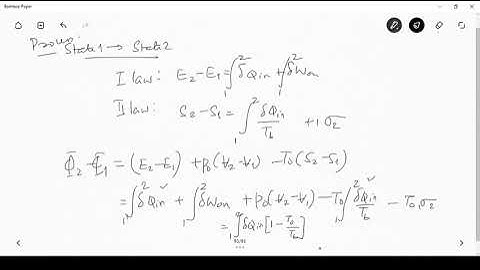 Bamboo Paper
Process
State1 → State2
I law: E₂−E₁ = ∫₁² δQin + ∫₁² δWon
II law: S₂−S₁ = ∫₁² δQin/Tb + ₁σ₂
Φ₂−Φ₁ = (E₂−E₁) + p₀(V₂−V₁) − T₀(S₂−S₁)
= ∫₁² δQin + ∫₁² δWon + p₀(V₂−V₁) − T₀ ∫₁² δQin/Tb − T₀ ₁σ₂
= ∫₁² δQin [1 − T₀/Tb]